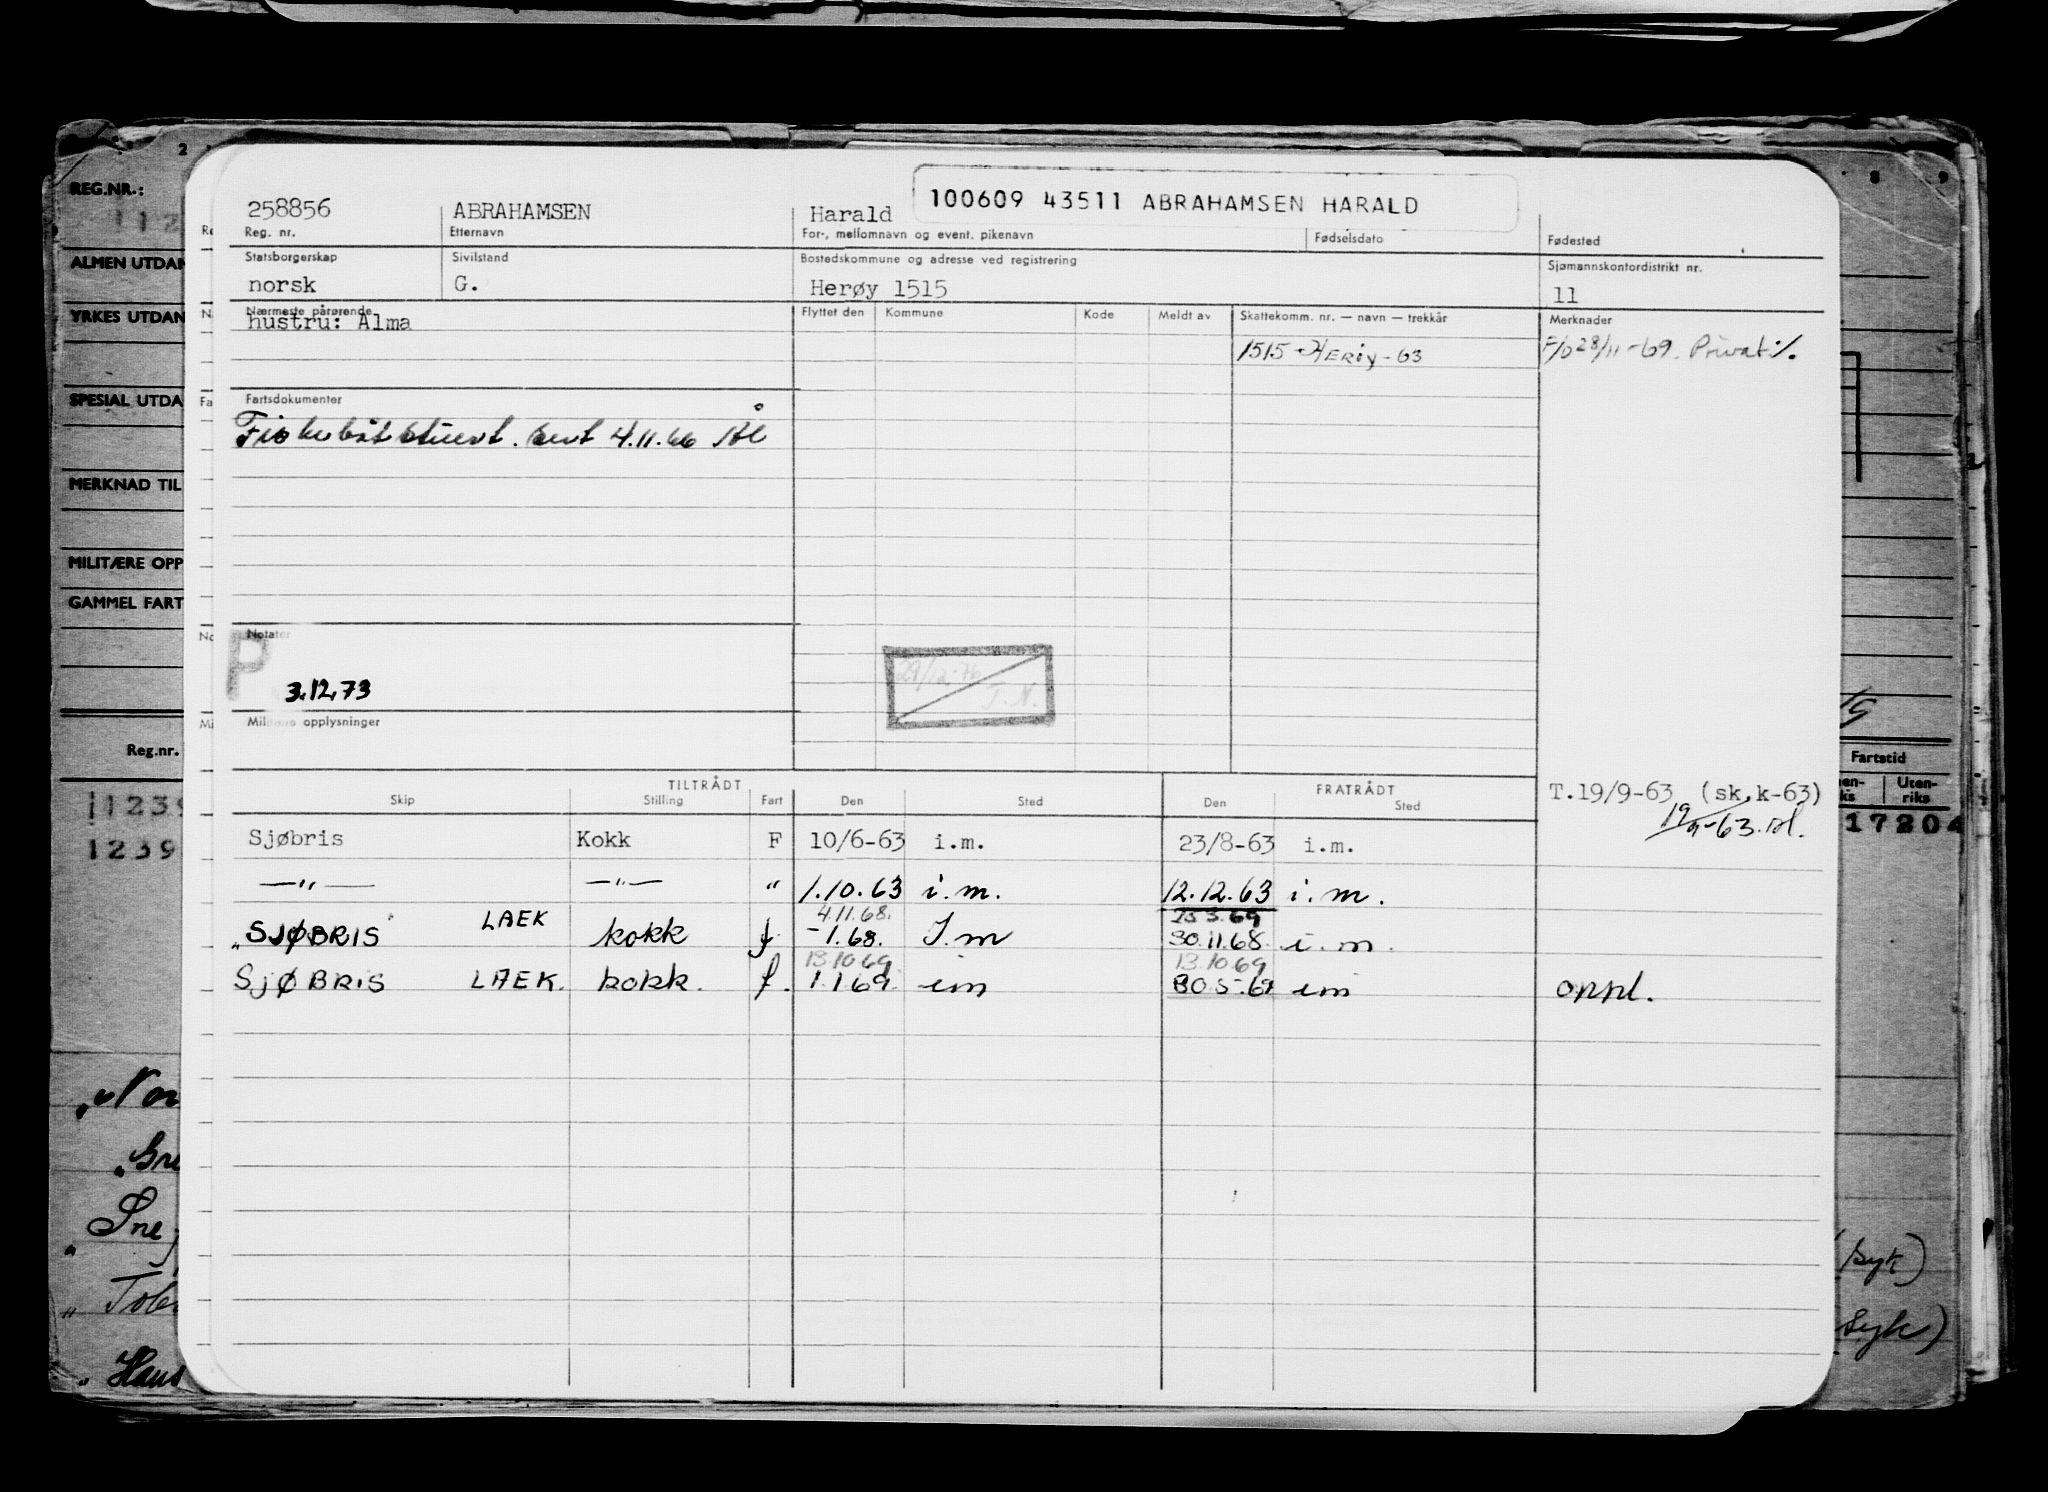 2 8 9
REG.NR.:
112
258856 ABRAHAMSEN Harald 100609 43511 ABRAHAMSEN HARALD
Reg. nr. Etternavn For-, mellomnavn og event. pikenavn Fødselsdato Fødested
ALMEN UTDAN
Statsborgerskap Sivilstand Bostedskommune og adresse ved registrering Sjømannskontordistrikt nr.
norsk G. Herøy 1515 11
YRKES UTDAN
Nærmeste pårørende Flyttet den Kommune Kode Meldt av Skattekomm. nr. — navn — trekkår Merknader
hustru: Alma
1515 Herøy-63 F/o 28/11-69. Privat ./.
SPESIAL UTDA Fa Fartsdokumenter
Fiskebåtstuert. sert 4.11.66 Ål
MERKNAD TIL
MILITÆRE OPP
GAMMEL FART
No Notater
P 3.12.73
29/12-76 T.N.
Mi Militære opplysninger
Reg.nr. Fartstid
TILTRÅDT FRATRÅDT
Skip Stilling Fart Den Sted Den Sted
T.19/9-63 (sk.k-63)
19/9-63. Ål.
en-ks Uten-riks
11239 17204
1239
Sjøbris Kokk F 10/6-63 i.m. 23/8-63 i.m.
—"— —"— " 1.10.63 i.m. 12.12.63 i.m.
4.11.68. 23 3.69
"SJØBRIS" LAEK kokk f -1.68. I.m 30.11.68. i.m.
13.10.69 13.10.69
SJØBRIS LAEK. kokk. f. 1.1.69. im 30.5.69 im oppl.
"Nor
"Gre
"Sne
(syk)
" Tob
syk)
" Hans